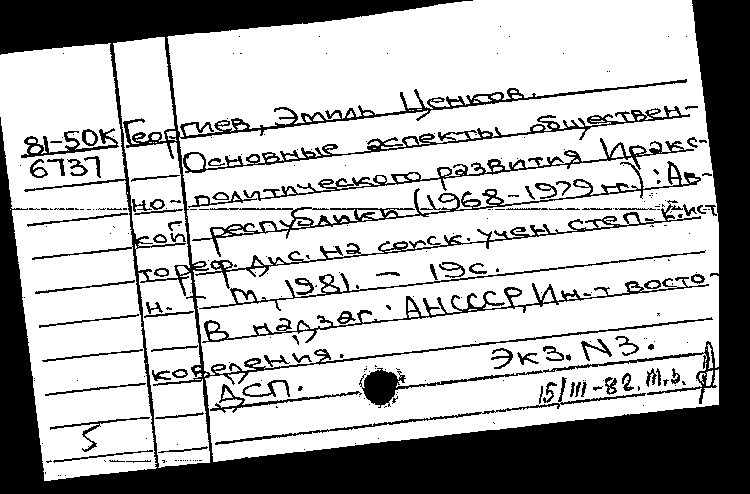 81-50К Георгиев, Эмиль Ценков.
6737 Основные аспекты обществен-
но-политического развития Иракс-
кой республики (1968-1979 гг.): Ав-
тореф. дис. на соиск. учен. степ. к. ист.
н. - М., 1981. - 19 с.
В надзаг.: АН СССР, Ин-т восто-
коведения.
ДСП. Экз. N3.
15/III-82. м.з.
5